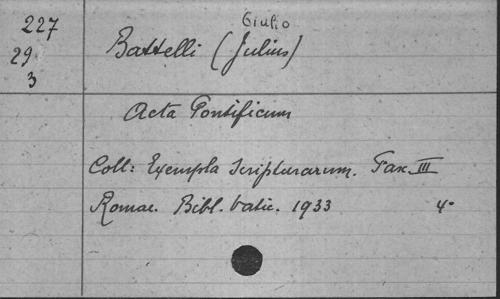 227
29
3
Giulio
Battelli (Julius)
Acta Pontificum
Coll: Exempla Scripturarum. Fasc. III
Romae. Bibl. Vatic. 1933 4°